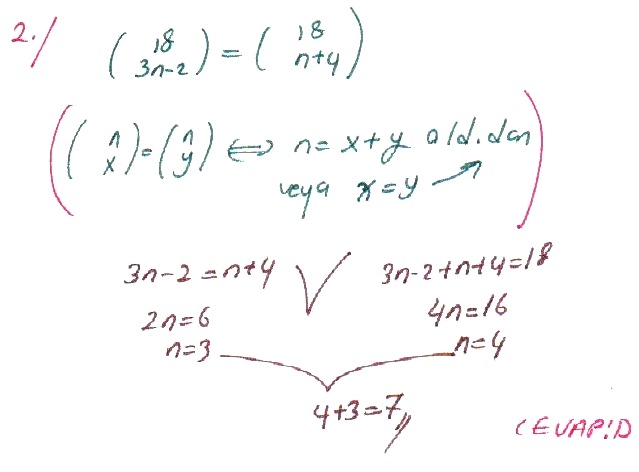 2./ (18 3n-2) = (18 n+4)
((n x) = (n y) ⟺ n = x+y old.dan
veya x=y)
3n-2=n+4 ∨ 3n-2+n+4=18
2n=6 4n=16
n=3 n=4
4+3=7
CEVAP:D